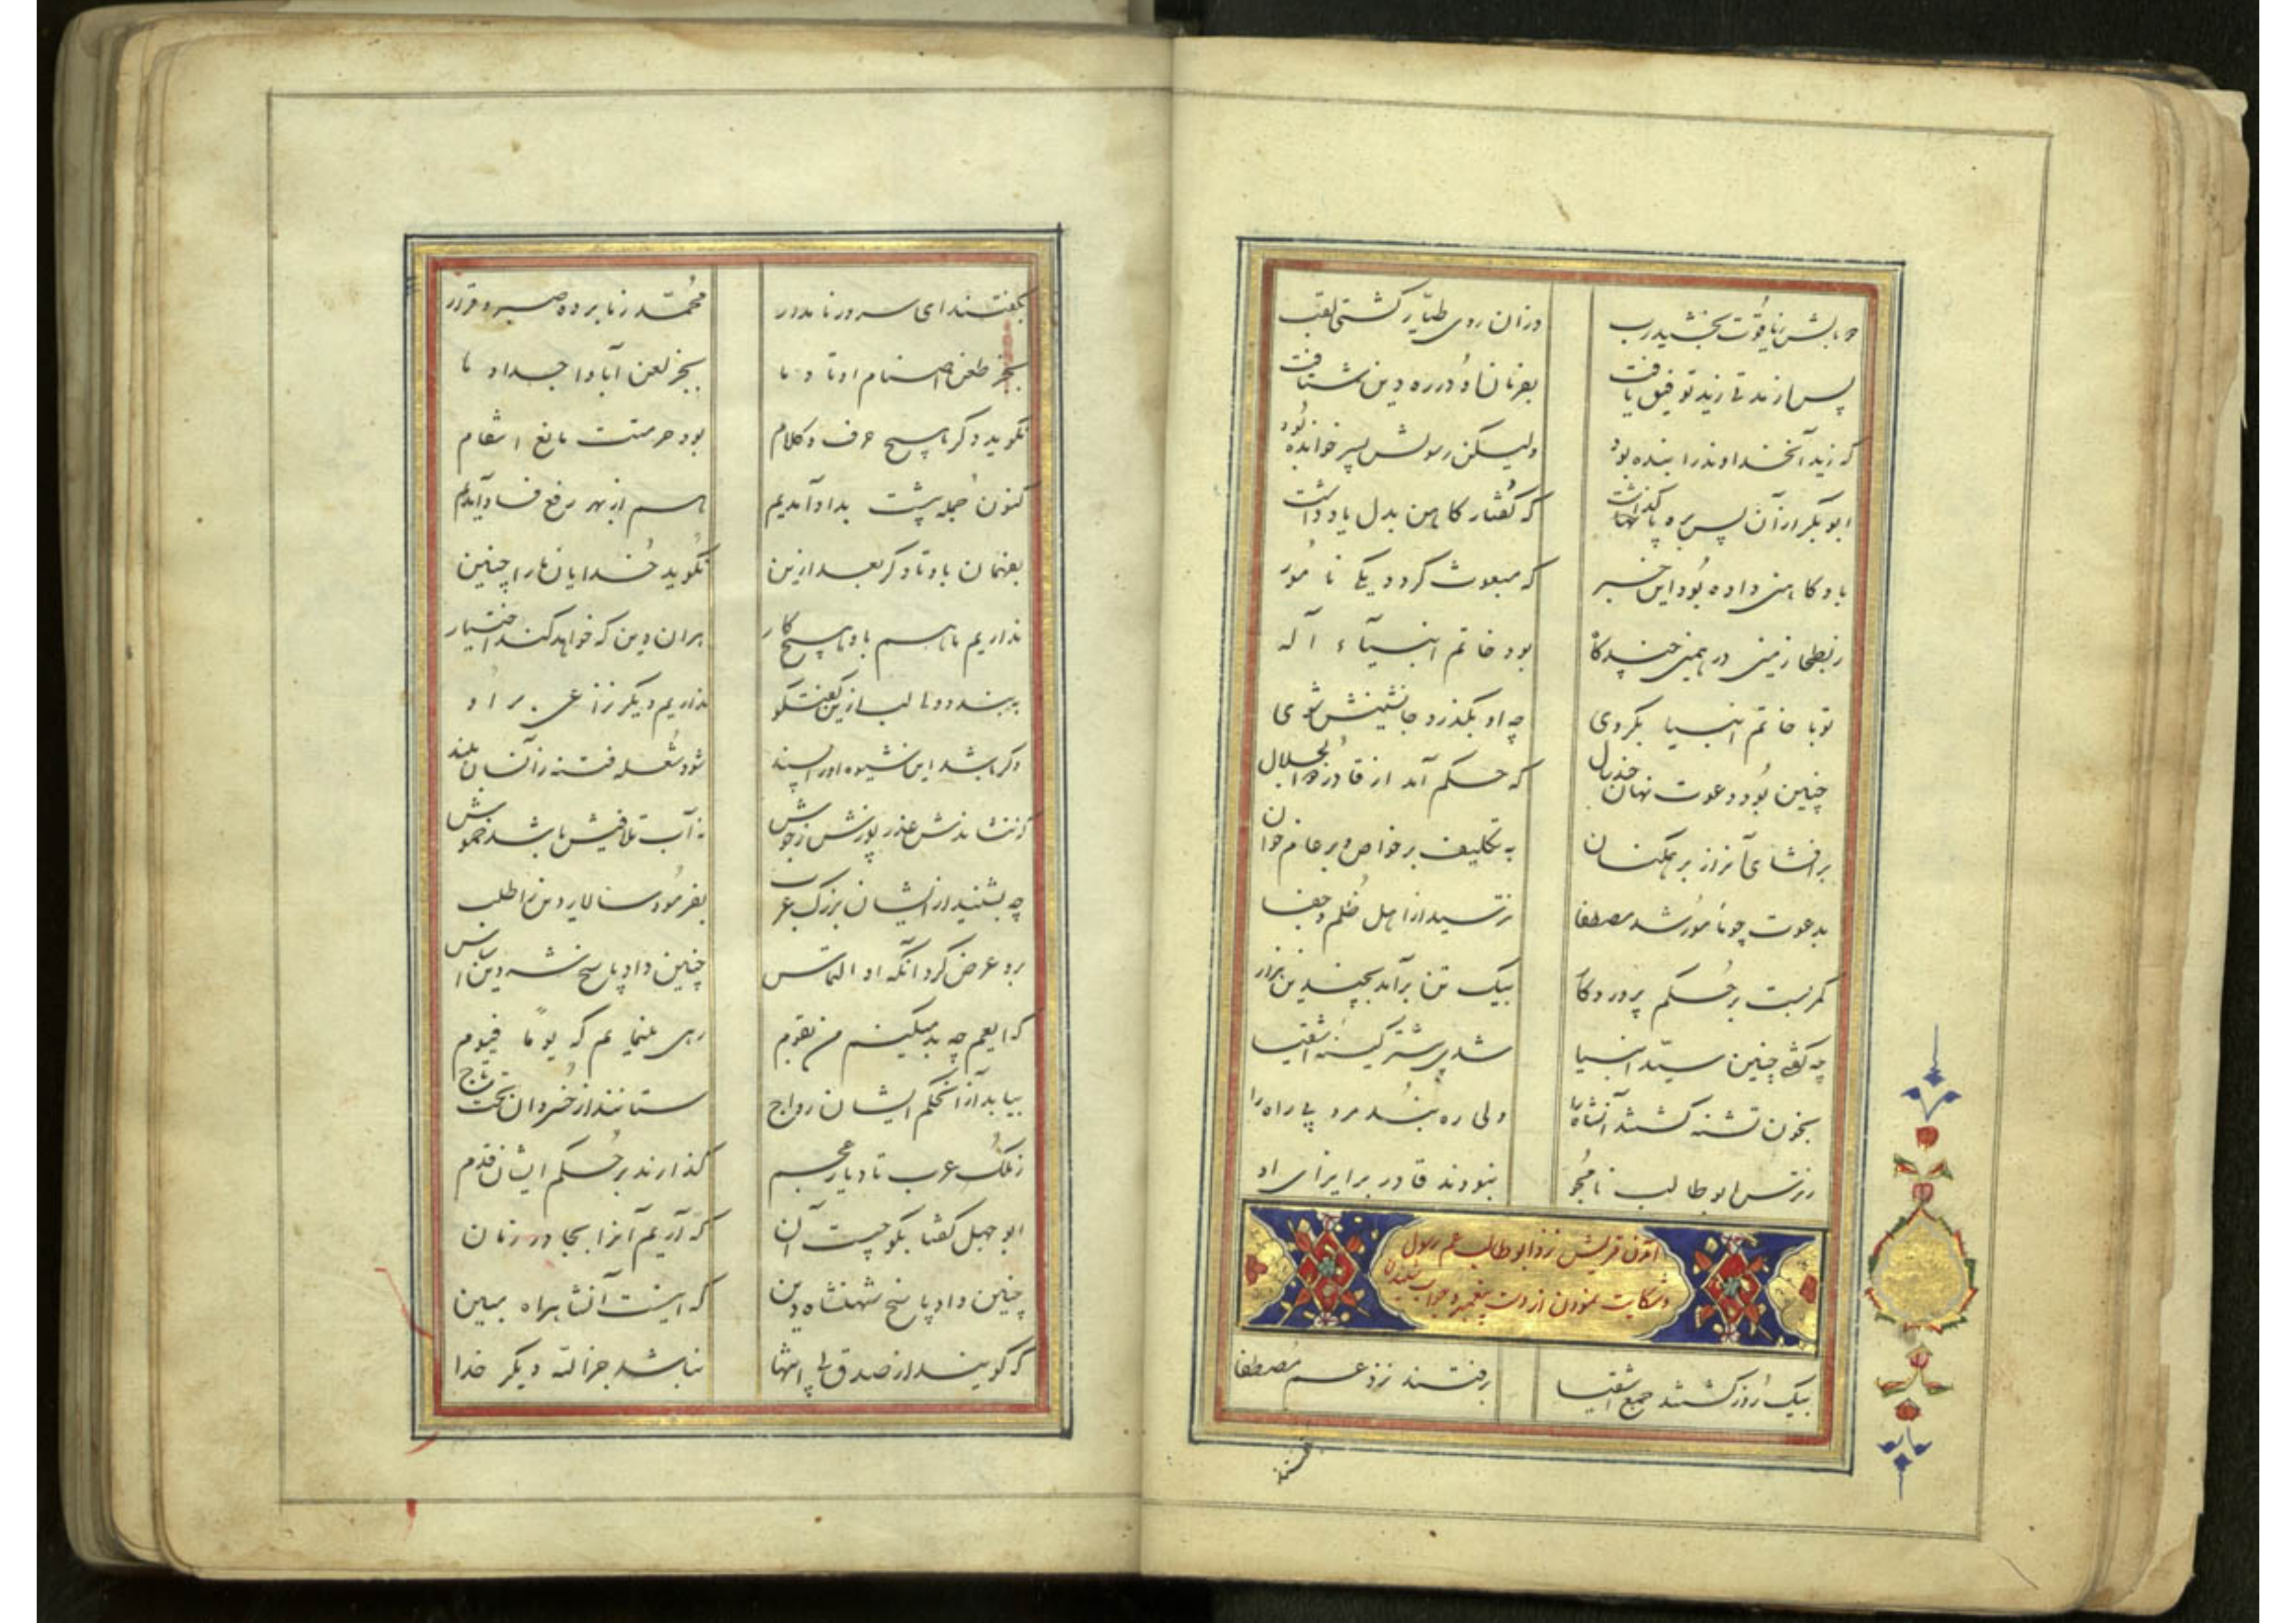 دو بالش ز یاقوت بخشید رب وزان روی طیار گشتی لقب
پس از مدتی زید توفیق یافت بفرمان او در ره دین شتافت
که زید آنخداوند را بنده بود ولیکن رسولش پسر خوانده بود
ابوبکر از آن پس بره پا گذاشت که گفتار کاهن بدل یاد داشت
باو کاهنی داده بود این خبر که مبعوث گردد یکی نامور
ز بطحا زمین در همین چندگاه بود خاتم انبیآء آله
تو با خاتم انبیا بگروی چه او بگذرد جانشینش شوی
چنین بود دعوت نهان چند سال که حکم آمد از قادر ذوالجلال
بر افشای آنراز بر همکنان به تکلیف بر خواص و بر عام خوان
بدعوت چو مأمور شد مصطفا نترسید از اهل ظلم و جفا
کمر بست بر حکم پروردگار بیک تن برآمد بچندین هزار
چه گفتی چنین سید انبیا شدی بیشتر کینه اشقیا
بخون تشنه گشتند آنشاه را ولی ره نبد مرد پی راه را
ز ترس ابوطالب نامجو نبودند قادر بر ایزای او
آمدن قریش نزد ابوطالب عم رسول
و شکایت نمودن از دست پیغمبر و جواب شنیدن
بیک روز گشتند جمع اشقیا برفتند نزد عم مصطفا
بگفتند
بگفتند ای سرور نامدار محمد ز ما برده صبر و قرار
بجز طعن اصنام اوتاد ما بجز لعن آبا و اجداد ما
نگوید دگر هیچ حرف و کلام بود حرمتت مانع انتقام
کنون جمله پیشت بداد آمدیم باسم از بهر رفع فساد آمدیم
بفهمان باو تا دگر بعد ازین نگوید خدایان ما را چنین
نداریم ما هم باو هیچ کار بران دین که خواهد کند اختیار
ببندد و ما لب ازین گفتگو نداریم دیگر نزاعی بر او
وگر باشد این شیوه او را پسند شود شعله فتنه زآنسان بلند
که ننشاندش عذر پوزش ز جوش نه آب تلافیش باشد خموش
چه بشنید از ایشان بزرگ عرب بفرمود سالار دین را طلب
برو عرض کرد آنگه او التماس چنین داد پاسخ شه دین اساس
که ایعم چه بد میکنم من بقوم رهی مینمایم که یوماً فیوم
بیابد از آن حکم ایشان رواج ستانند از خسروان تخت و تاج
ز ملک عرب تا دیار عجم گذارند بر حکم ایشان قدم
ابوجهل گفتا بگو چیست آن که آریم آنرا بجا در زمان
چنین داد پاسخ شهنشاه دین که اینست آنشاهراه مبین
که گویند از صدق بی اشتها نباشد جز الله دیگر خدا